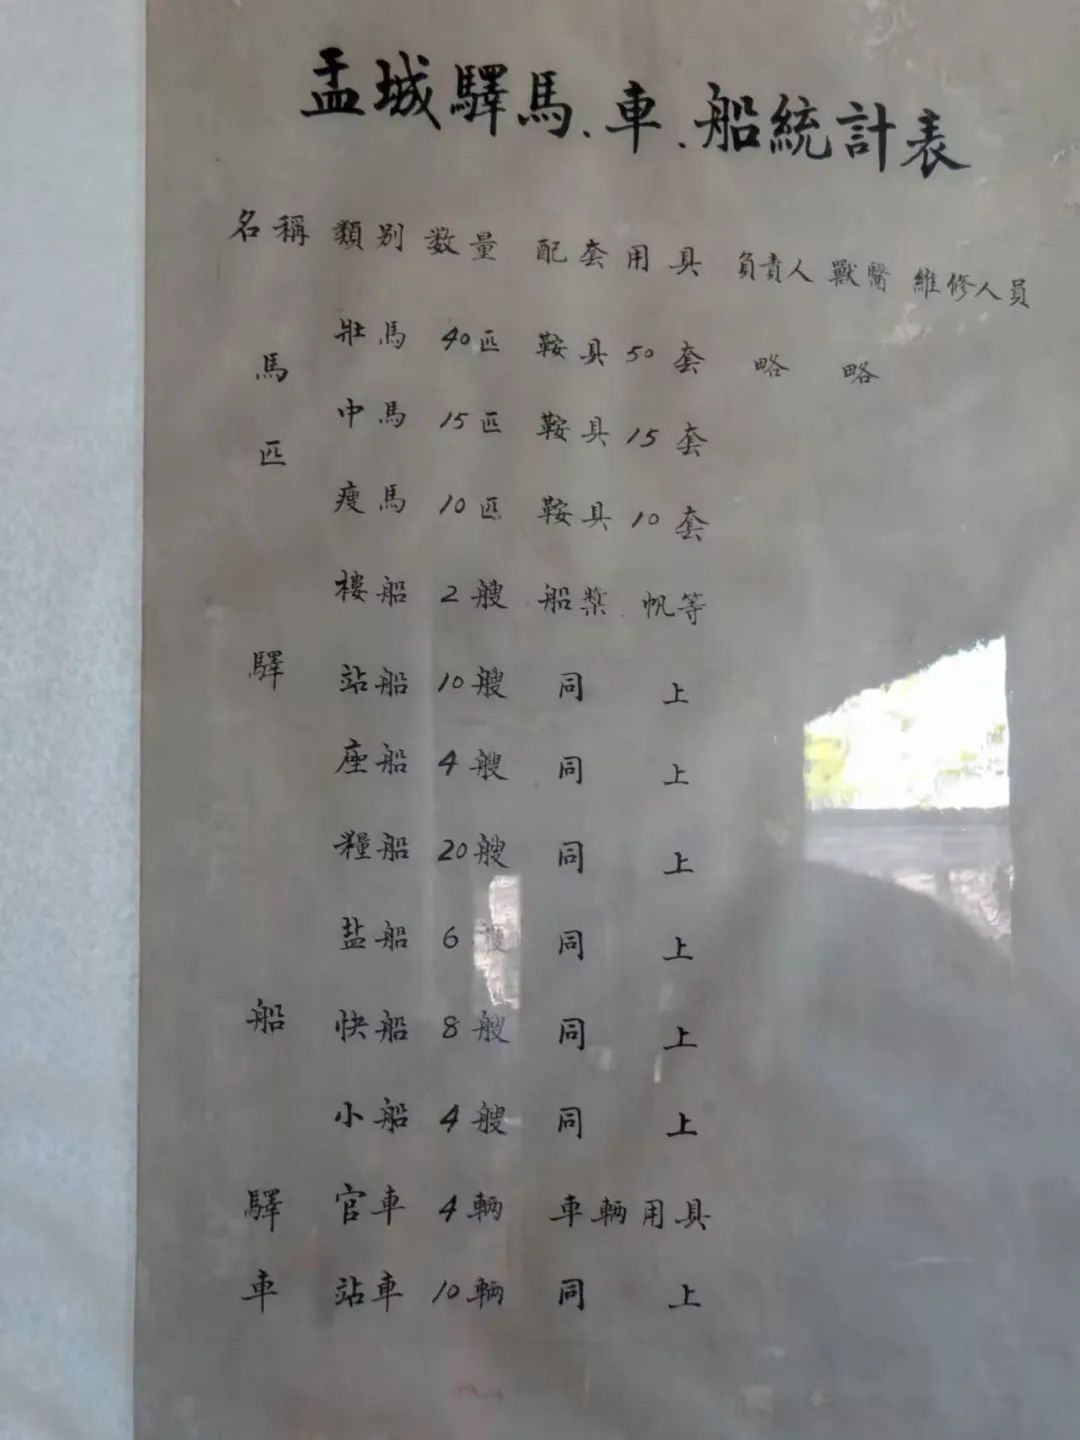 盂城驛馬、車、船統計表
名稱 類別 数量 配套用具 負責人 獸醫 維修人員
馬匹
壯馬 40匹 鞍具50套 略 略
中馬 15匹 鞍具15套
瘦馬 10匹 鞍具10套
驛船
樓船 2艘 船槳.帆等
站船 10艘 同上
座船 4艘 同上
糧船 20艘 同上
盐船 6艘 同上
快船 8艘 同上
小船 4艘 同上
驛車
官車 4輛 車輛用具
站車 10輛 同上